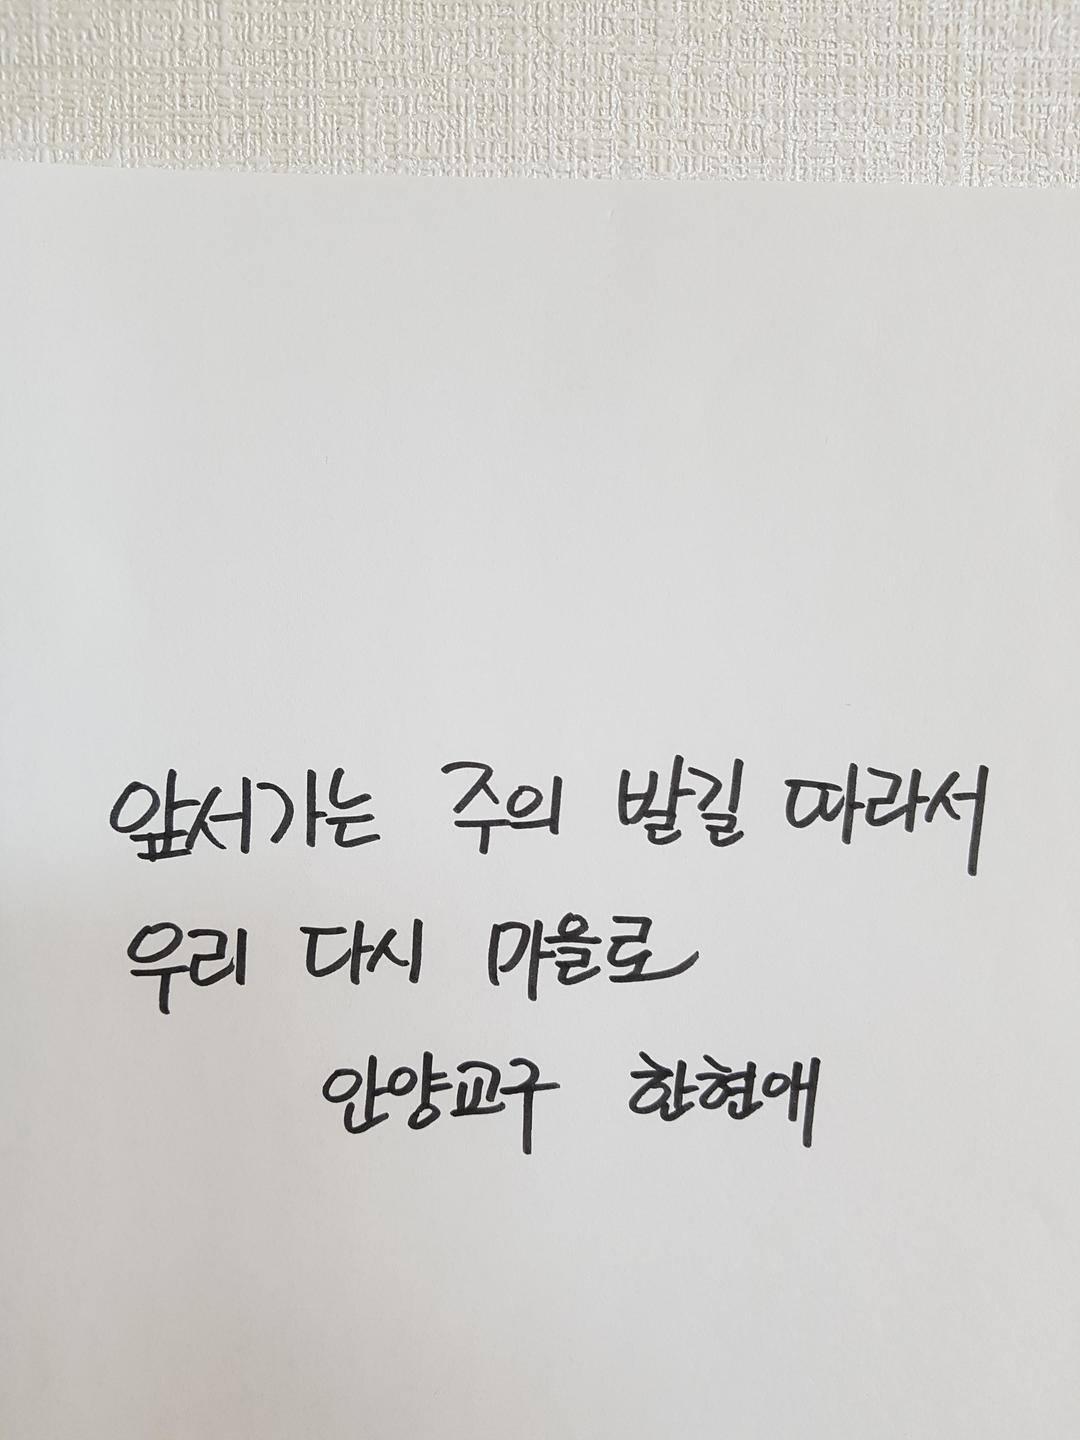 앞서가는 주의 발길 따라서
우리 다시 마을로
안양교구 한현애